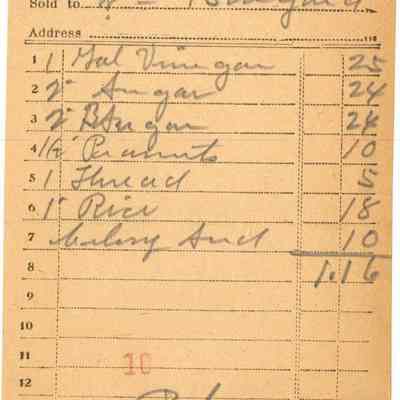 Sold to
Address 116
1 1 Gal Vinegar 25
2 2# Sugar 24
3 2# B Sugar 24
4 1/2# Peanuts 10
5 1 Thread 5
6 1# Rice 18
7 Celery Seed 10
8 1.16
9
10
11 10
12